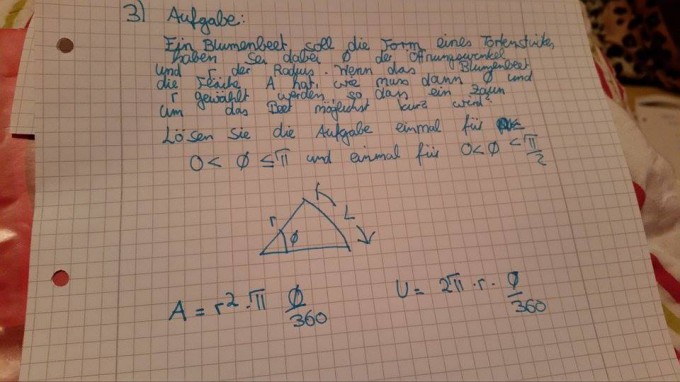 3) Aufgabe:
Ein Blumenbeet soll die Form eines Tortenstückes
haben. Sei dabei Ø der Öffnungswinkel
und r der Radius. Wenn das Blumenbeet
die Fläche A hat, wie muss dann Ø und
r gewählt werden, so dass ein Zaun
um das Beet möglichst kurz wird?
Lösen Sie die Aufgabe einmal für
0 < Ø ≤ π und einmal für 0 < Ø ≤ π/2
r Ø L
A = r² · π Ø/360
U = 2π · r · Ø/360